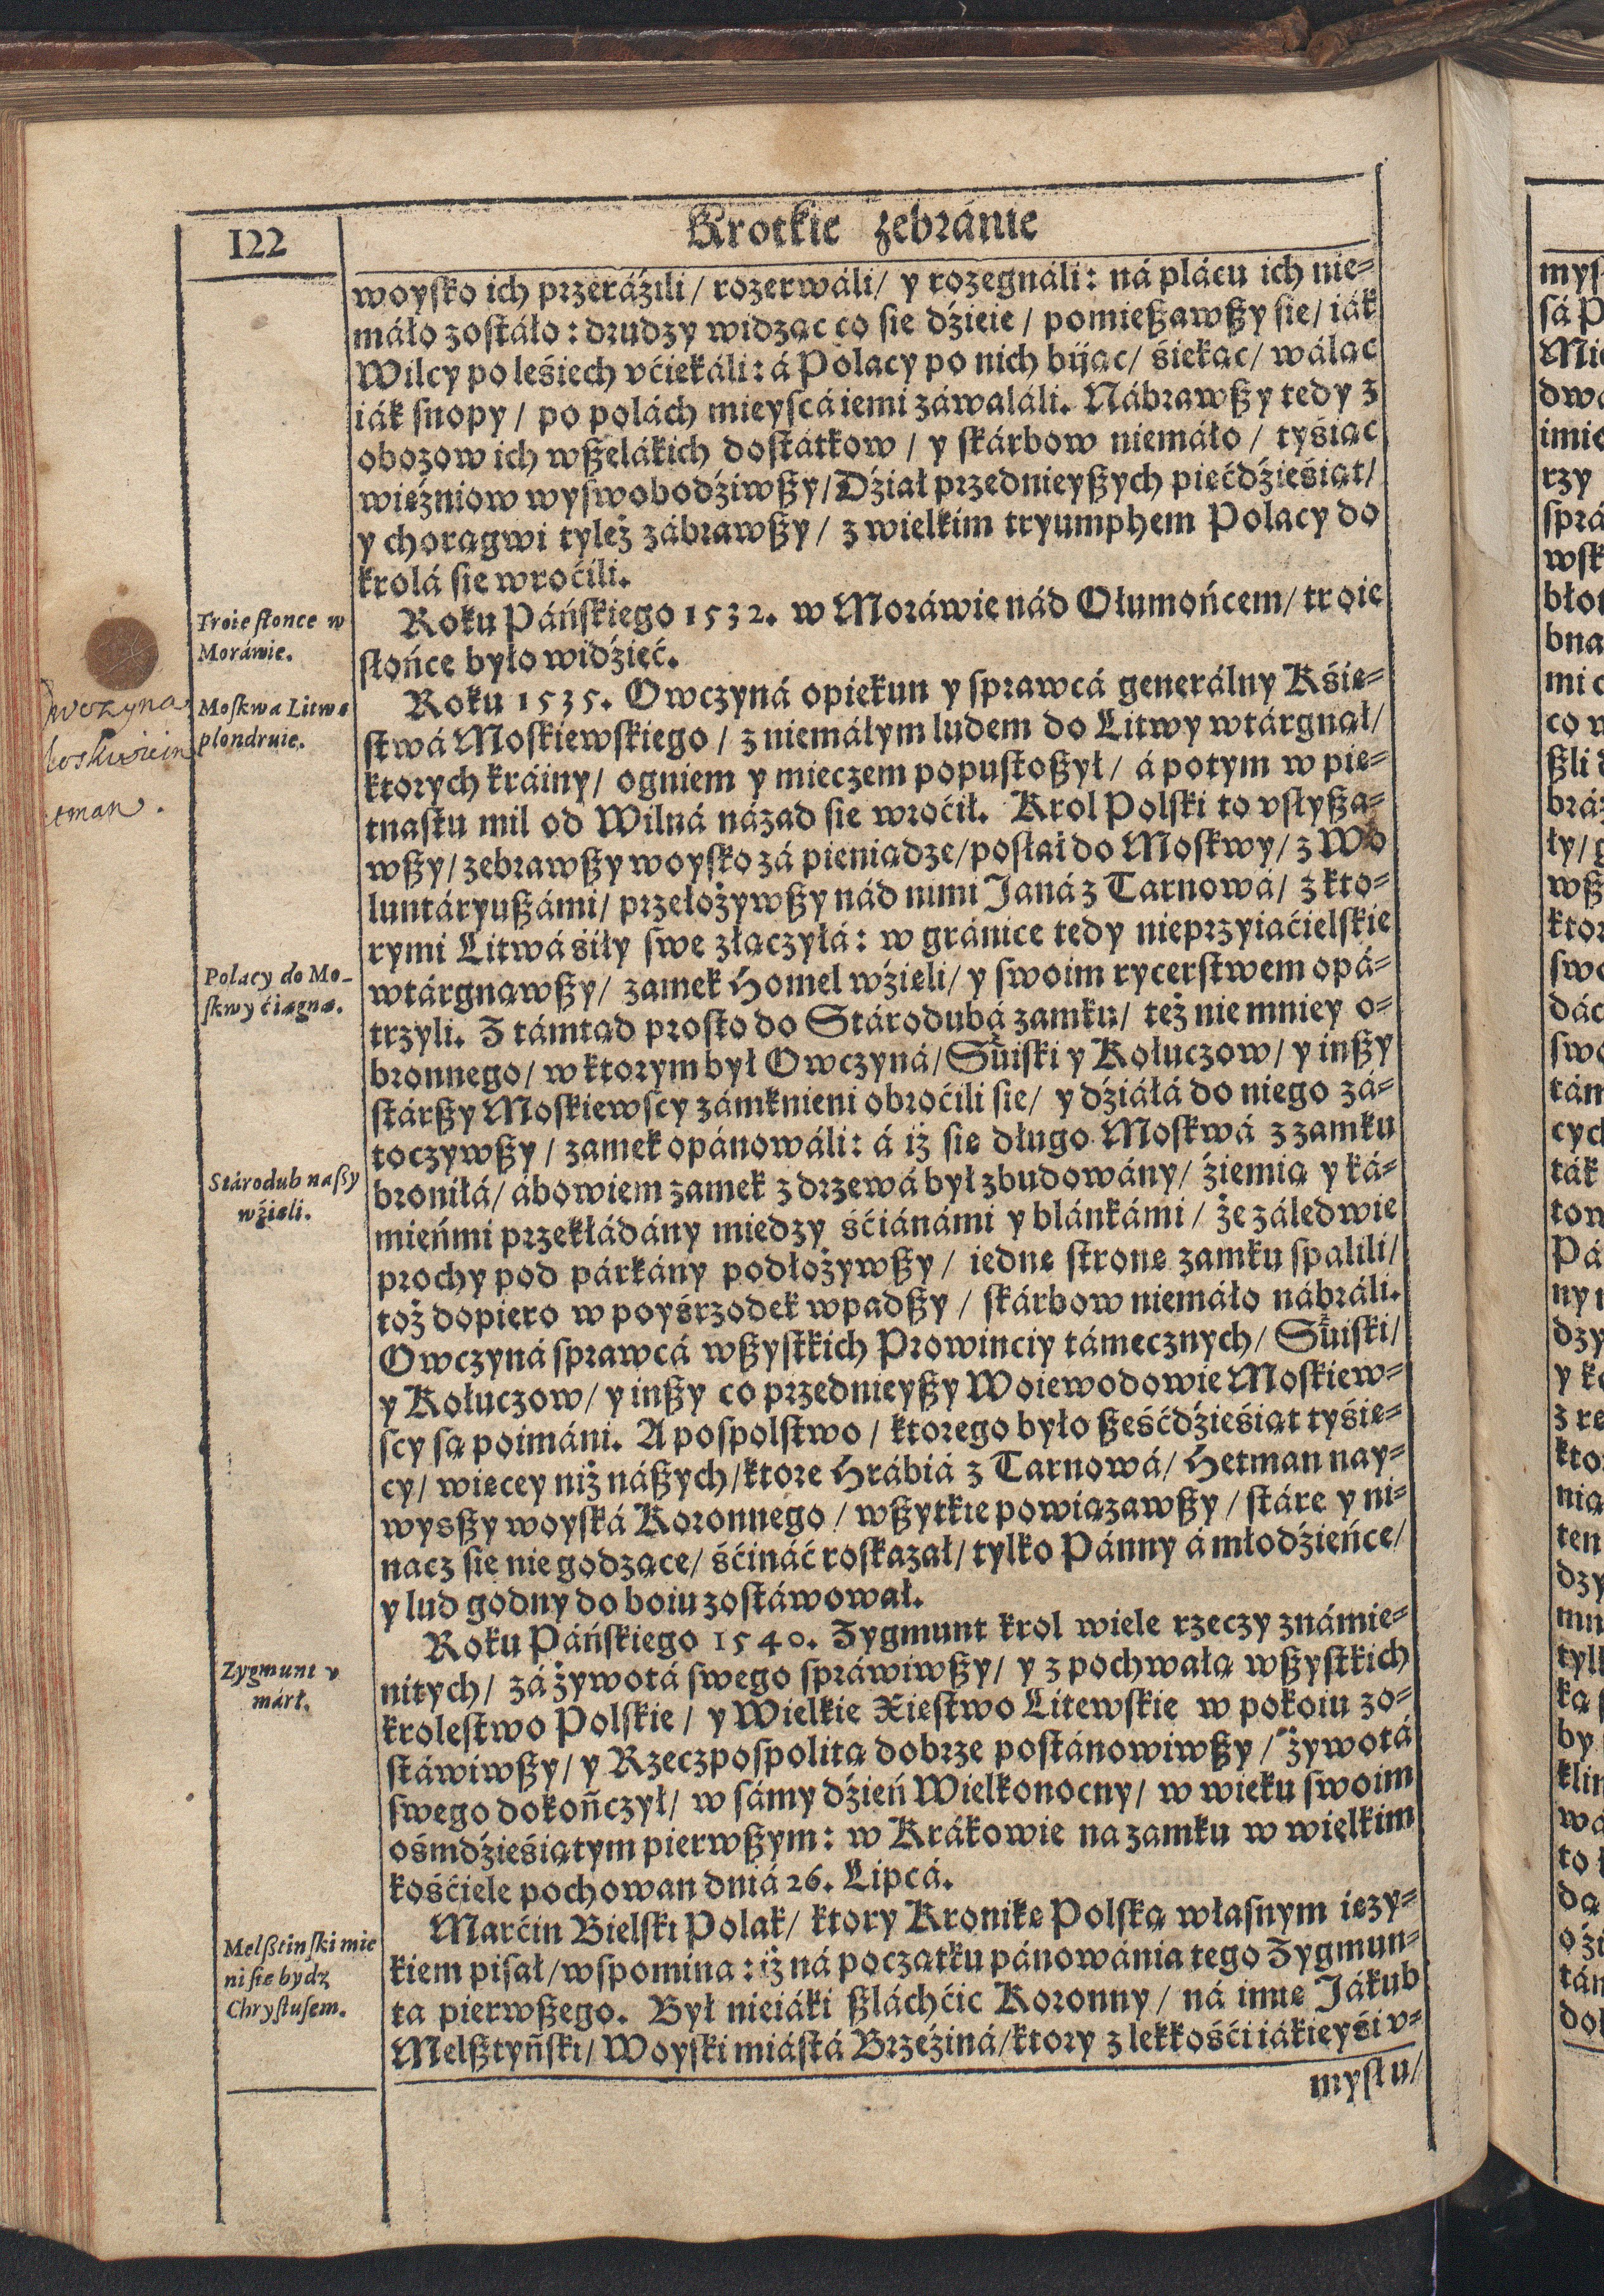 122
Krotkie zebránie
woysko ich przeráźili/ rozerwáli/ y rozegnáli: ná plácu ich nie=
máło zostáło: drudzy widząc co sie dźieie/ pomießawßy sie/ iák
Wilcy po leśiech vćiekáli: á Polacy po nich bijąc/ śiekąc/ wáląc
iák snopy/ po polách mieyscá iemi záwaláli. Nábrawßy tedy z
obozow ich wßelákich dostátkow/ y skárbow niemáło/ tyśiąc
więźniow wyswobodźiwßy/ Dźiał przednieyßych pięćdźieśiąt/
y chorągwi tyleż zábrawßy/ z wielkim tryumphem Polacy do
krolá sie wroćili.
Troie słonce w
Moráwie.
Roku Páńskiego 1532. w Moráwie nád Ołumońcem/ troie
słońce było widźieć.
Moskwa Litwę
plondruie.
Roku 1535. Owczyná opiekun y sprawcá generálny Kśię=
stwá Moskiewskiego/ z niemáłym ludem do Litwy wtárgnął/
ktorych kráiny/ ogniem y mieczem popustoßył/ á potym w pię=
tnastu mil od Wilná názad sie wroćił. Krol Polski to vsłyßa=
wßy/ zebrawßy woysko zá pieniądze/ posłał do Moskwy/ z Wo
luntáryußámi/ przełożywßy nád nimi Janá z Tarnowá/ z kto=
rymi Litwá śiły swe złączyłá: w gránice tedy nieprzyiaćielskie
Polacy do Mo-
skwy ćiągną.
wtárgnąwßy/ zamek Homel wźięli/ y swoim rycerstwem opá=
trzyli. Z támtąd prosto do Stárodubá zamku/ też nie mniey o=
bronnego/ w ktorym był Owczyná/ Suiski y Kołuczow/ y inßy
stárßy Moskiewscy zámknieni obroćili sie/ y dźiáłá do niego zá=
toczywßy/ zamek opánowáli: á iż sie długo Moskwá z zamku
Stárodub naßy
wźięli.
broniłá/ ábowiem zamek z drzewá był zbudowány/ źiemią y ká=
mieńmi przekłádány miedzy śćiánámi y blánkámi/ że záledwie
prochy pod párkány podłożywßy/ iednę stronę zamku spalili/
toż dopiero w poyśrzodek wpadßy/ skárbow niemáło nábráli.
Owczyná sprawcá wßystkich Prowinciy támecznych/ Suiski/
y Kołuczow/ y inßy co przednieyßy Woiewodowie Moskiew=
scy są poimáni. A pospolstwo/ ktorego było ßeśćdźieśiąt tyśię=
cy/ więcey niż náßych/ ktore Hrábiá z Tarnowá/ Hetman nay=
wyżßy woyská Koronnego/ wßytkie powiązawßy/ stáre y ni=
nacz się nie godzące/ śćináć roskazał/ tylko Pánny á młodźieńce/
y lud godny do boiu zostáwował.
Zygmunt v
márł.
Roku Páńskiego 1540. Zygmunt krol wiele rzeczy známie=
nitych/ zá żywotá swego spráwiwßy/ y z pochwałą wßystkich
krolestwo Polskie/ y Wielkie Xiestwo Litewskie w pokoiu zo=
stáwiwßy/ y Rzeczpospolitą dobrze postánowiwßy/ żywotá
swego dokończył/ w sámy dźień Wielkonocny/ w wieku swoim
ośmdźieśiątym pierwßym: w Krákowie na zamku w wielkim
kośćiele pochowan dniá 26. Lipcá.
Melßtinski mie
ni sie bydz
Chrystusem.
Marćin Bielski Polak/ ktory Kronikę Polską własnym ięzy=
kiem pisał/ wspomina: iż ná początku pánowánia tego Zygmun=
ta pierwßego. Był nieiáki ßláchćic Koronny/ ná imię Jákub
Melßtyński/ Woyski miástá Brzeźiná/ ktory z lekkośći iákieyśi v=
mysłu/